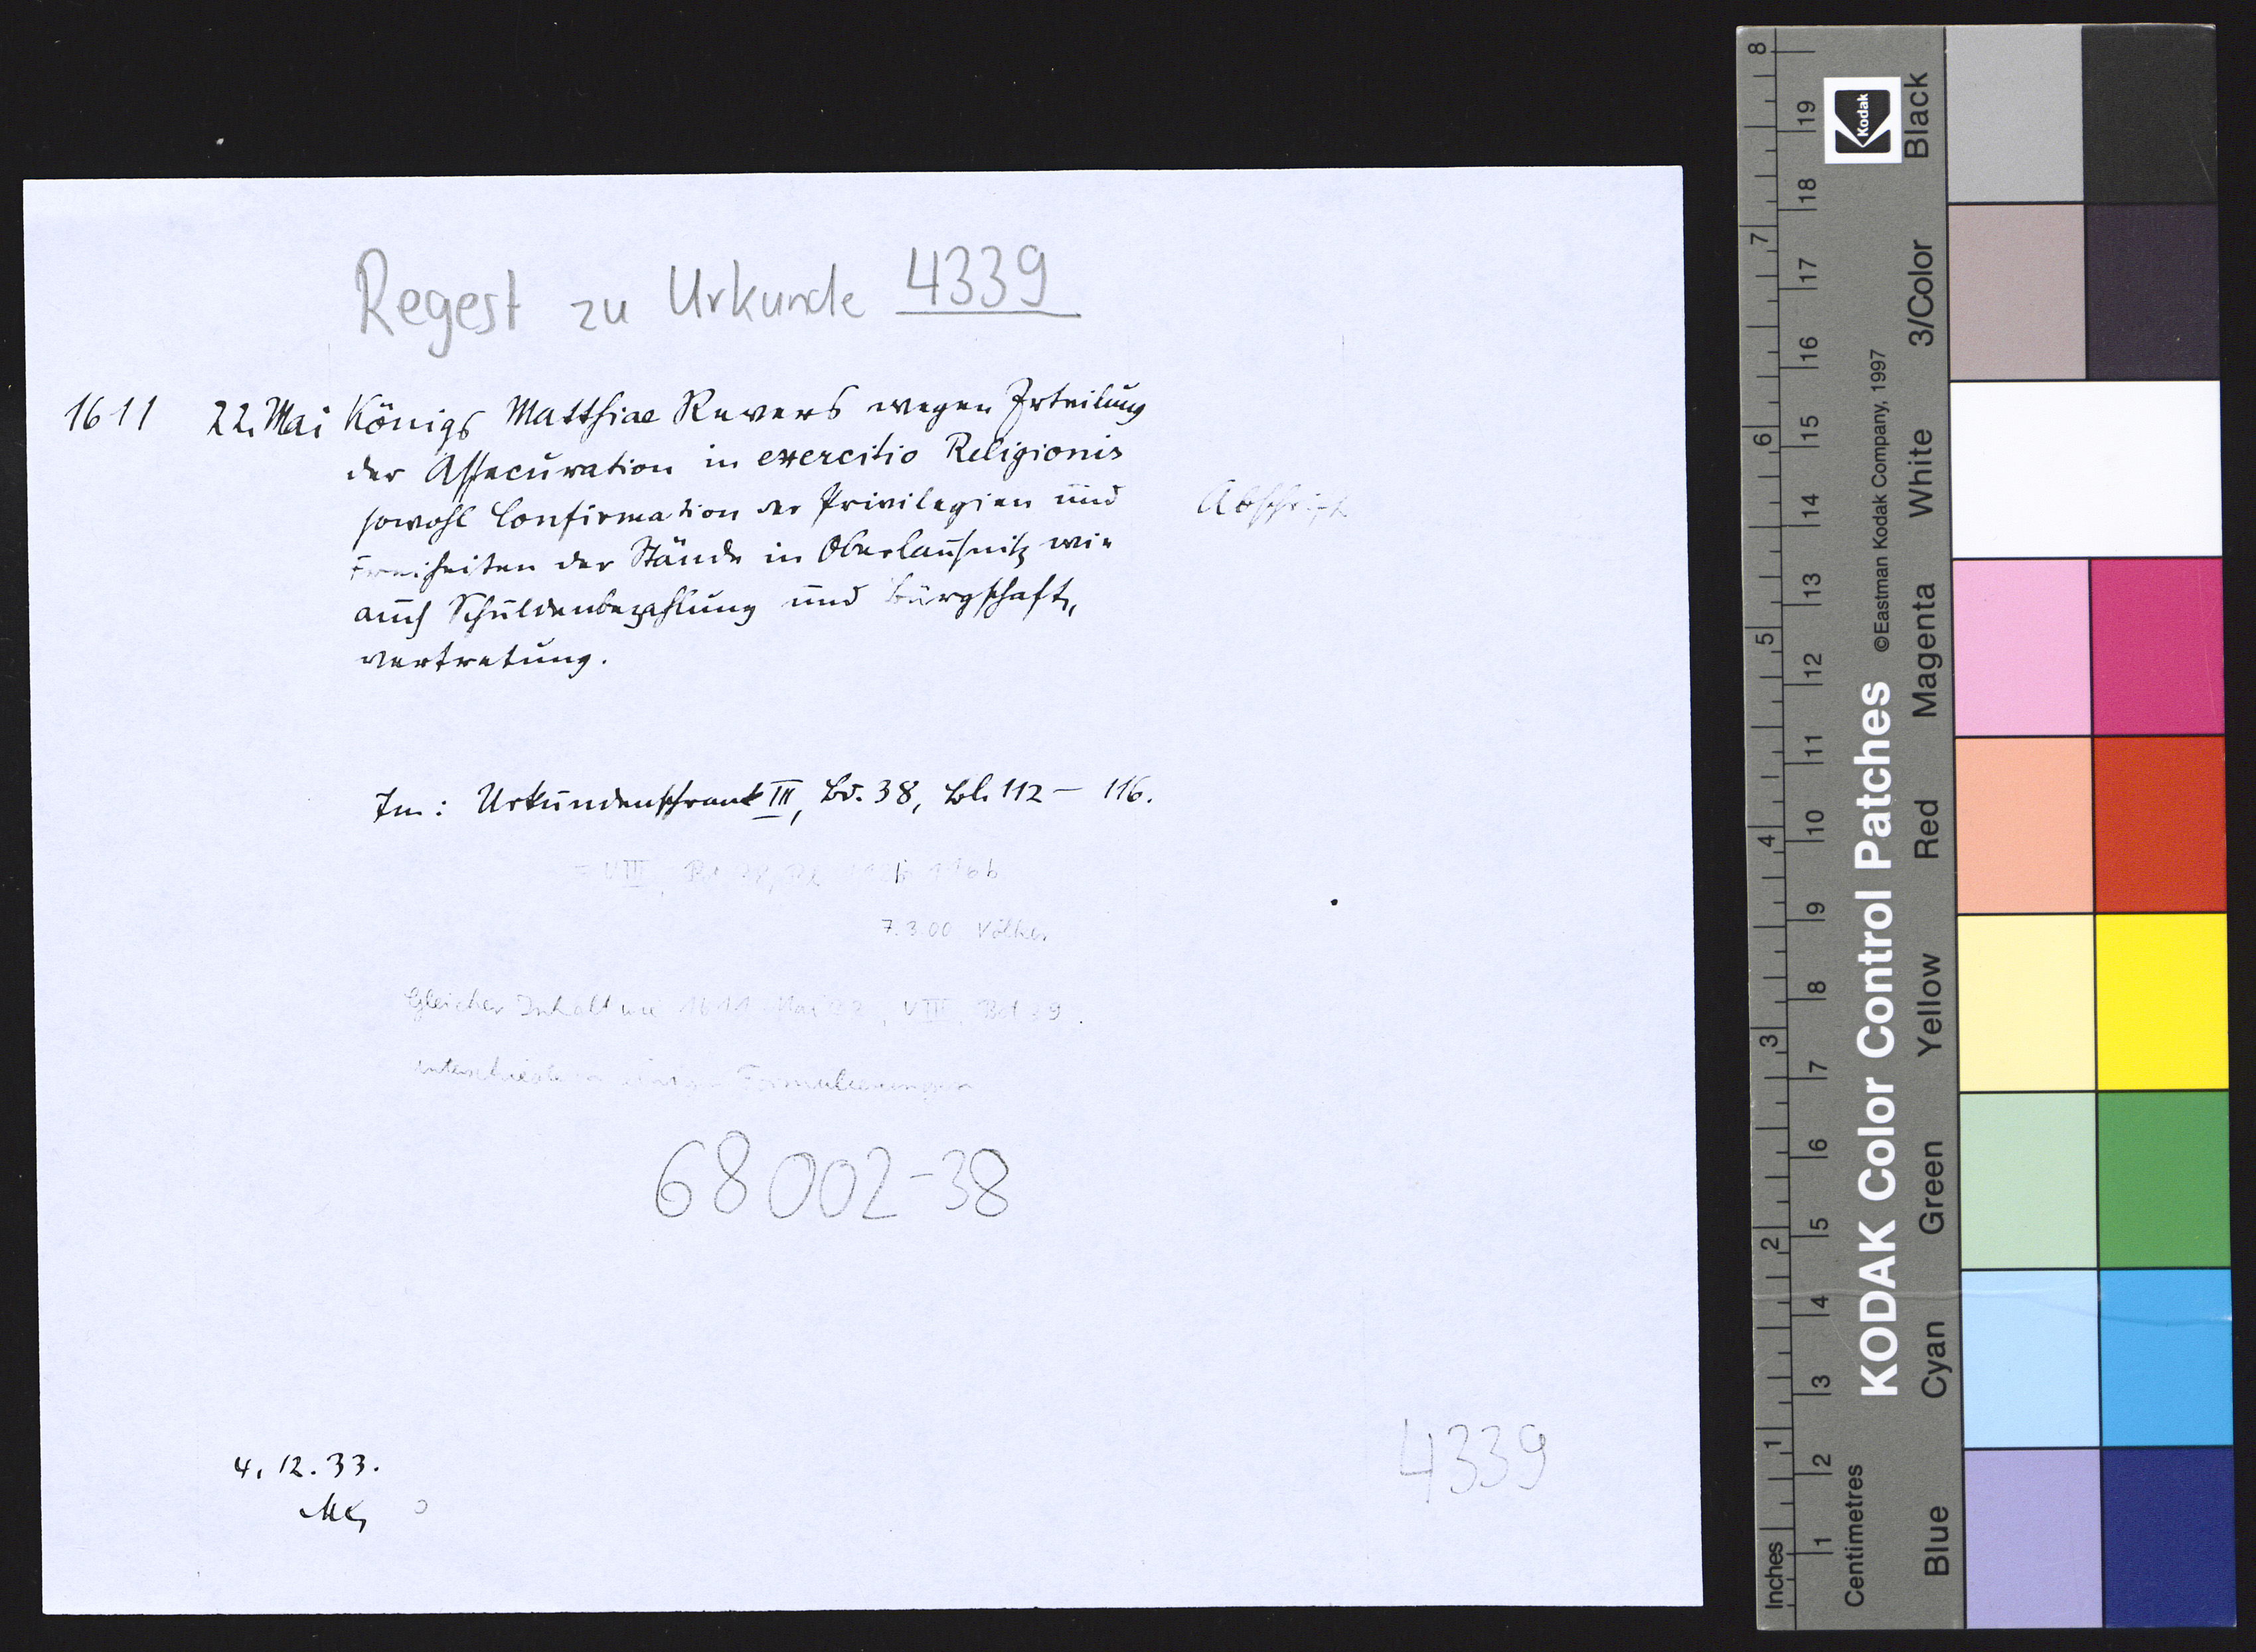 Regest zu Urkunde 4339
1611 22. Mai Königs Matthiae Revers wegen Erteilung
der Assecuration in exercitio Religionis
sowohl Confirmation der Privilegien und
Freiheiten der Stände in Oberlausnitz wie
auch Schuldenbezahlung und Bürgschaft-
vertretung.
Abschrift
In: Urkundenschrank III, Bd. 38, Bl. 112 – 116.
= VIII, 116b
7.3.00 Völkel
Gleicher Inhalt wie 1611 Mai, VIII, Bd 39.
Formulierungen
68002-38
4.12.33.
4339
KODAK Color Control Patches
©Eastman Kodak Company, 1997
Kodak
Inches 1 2 3 4 5 6 7 8
Centimetres 1 2 3 4 5 6 7 8 9 10 11 12 13 14 15 16 17 18 19
Blue Cyan Green Yellow Red Magenta White 3/Color Black